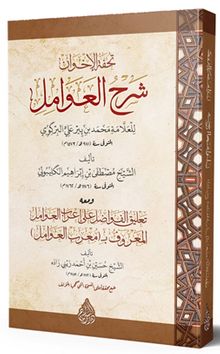 تحفة الإخوان
شرح العوامل
للعلامة محمد بن پير علي البركوي
المتوفى سنة
تأليف
الشيخ مصطفى بن إبراهيم الكليبولي
المتوفى سنة
ومعه
تعليق الفواضل على إعراب العوامل
المعروف بـ (معرب العوامل)
تأليف
الشيخ حسين بن أحمد زيني زاده